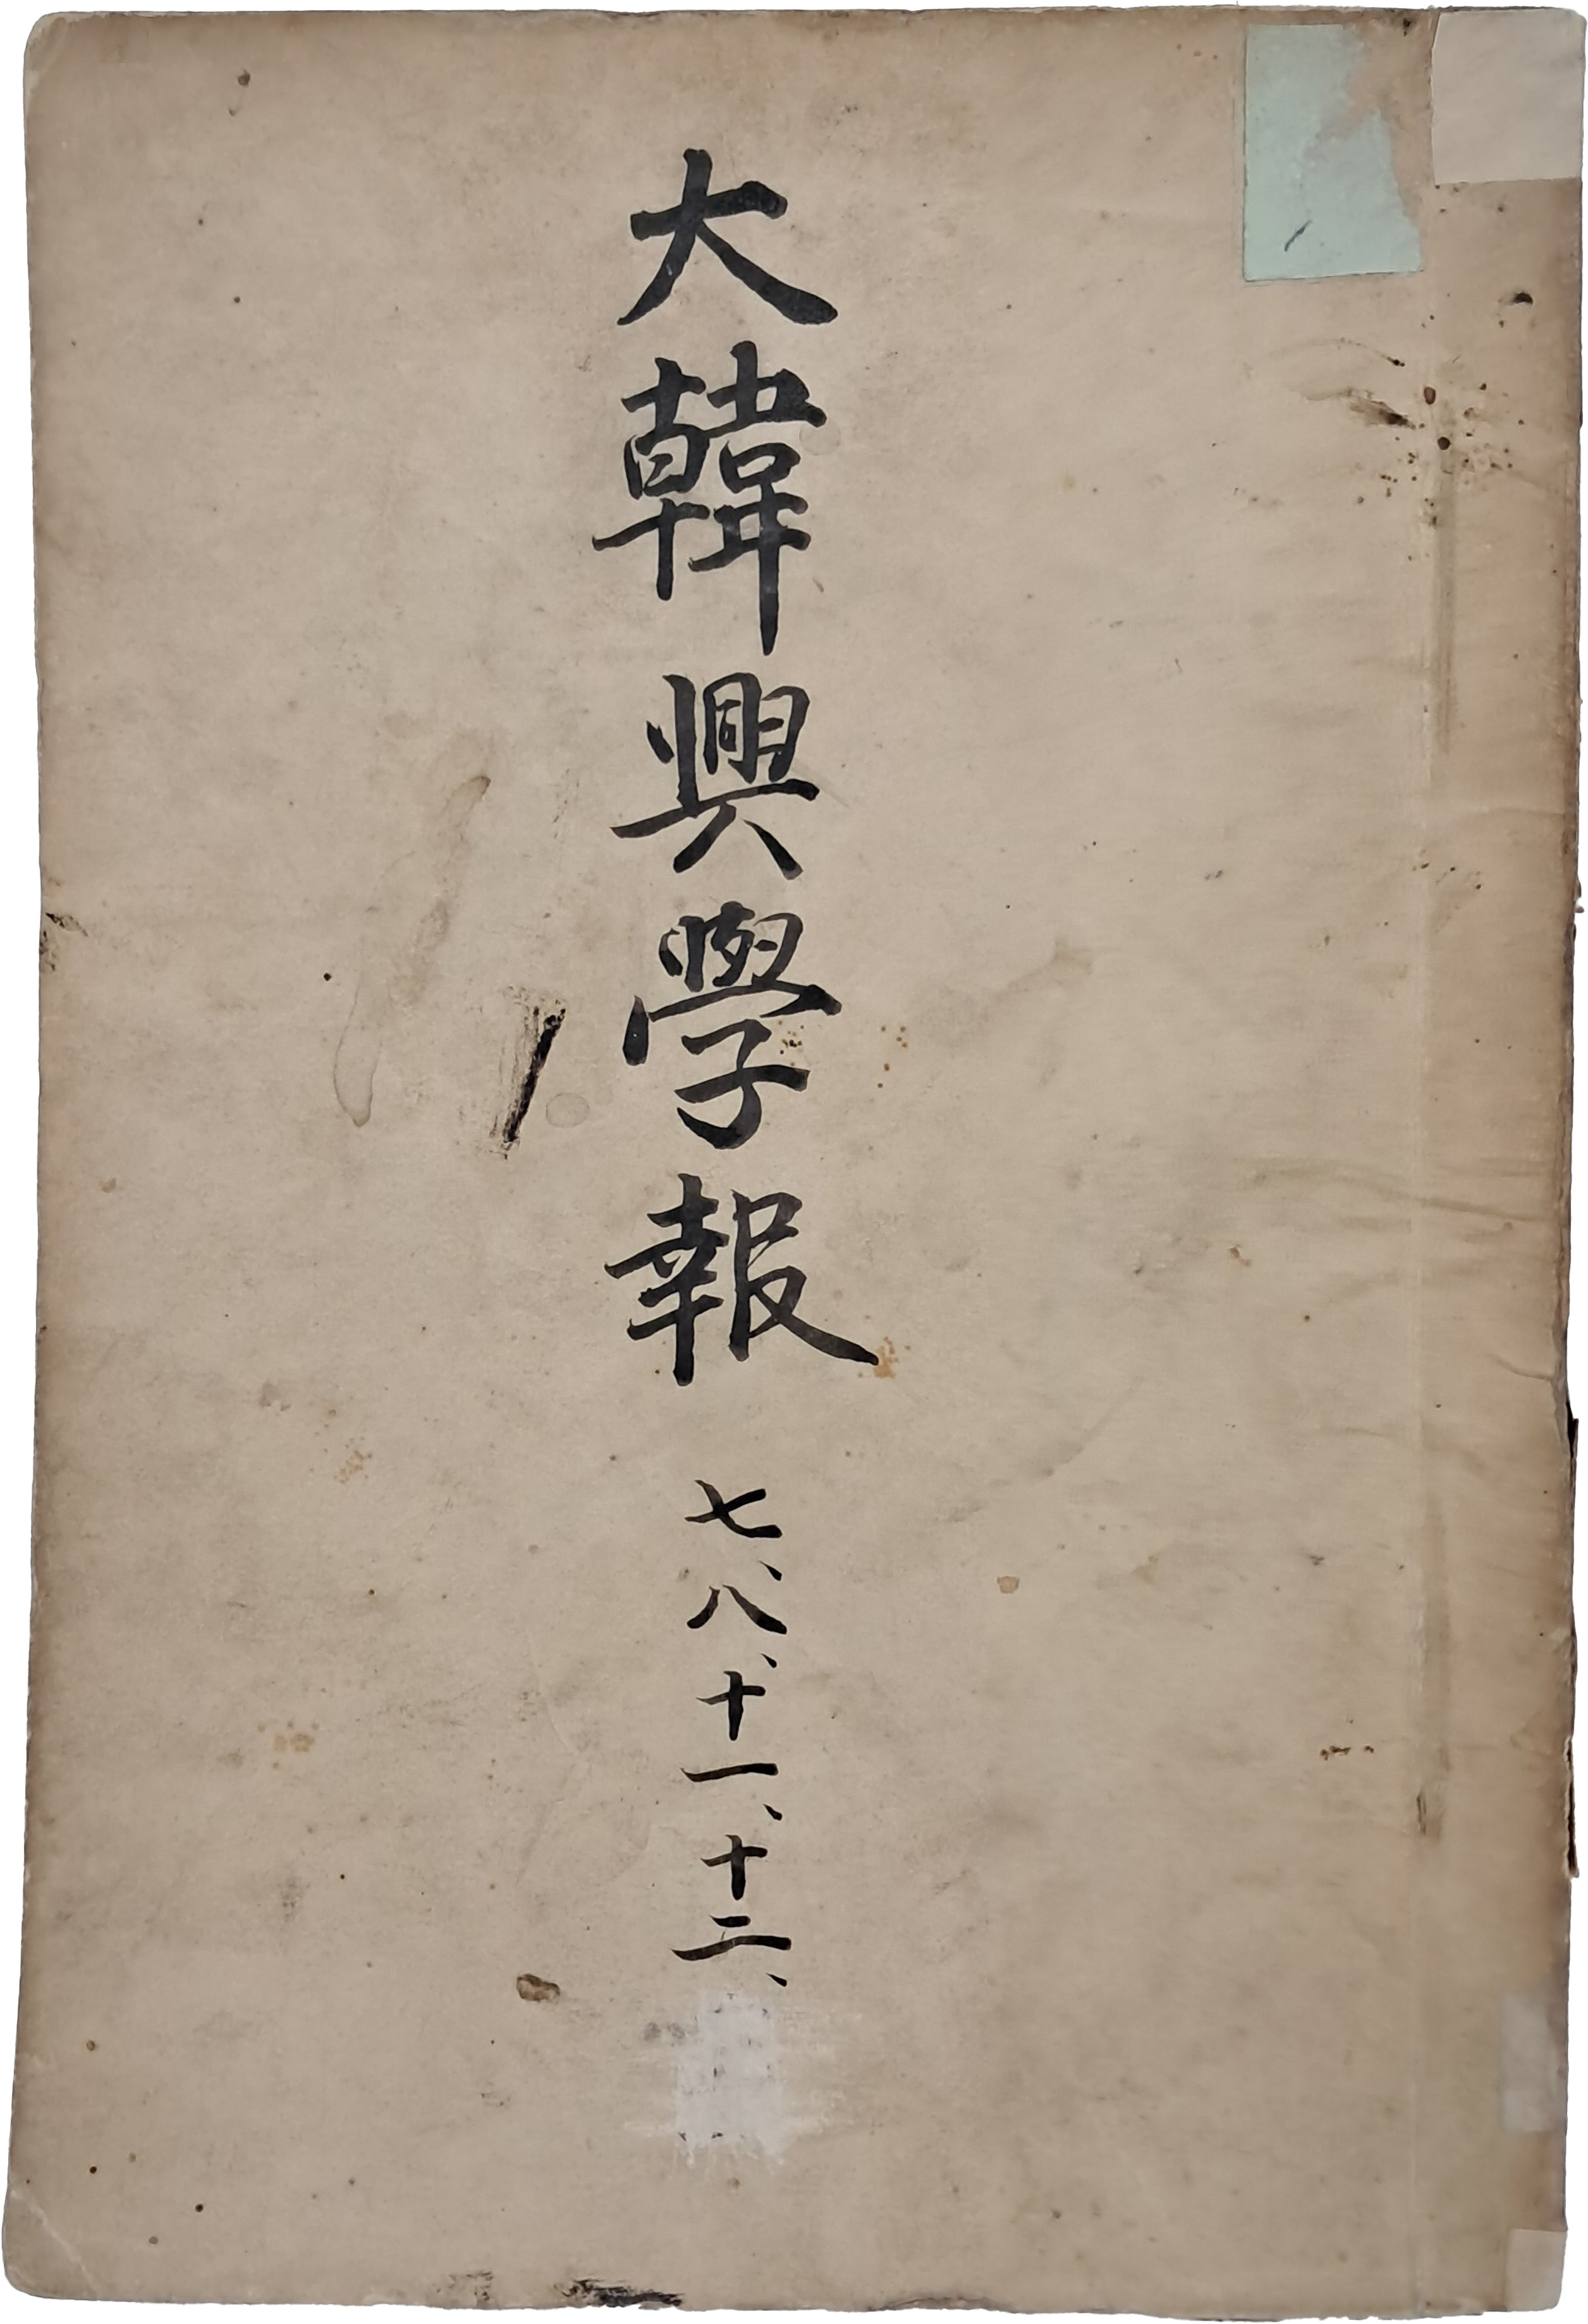 大韓興學報 七、八、十一、十二、